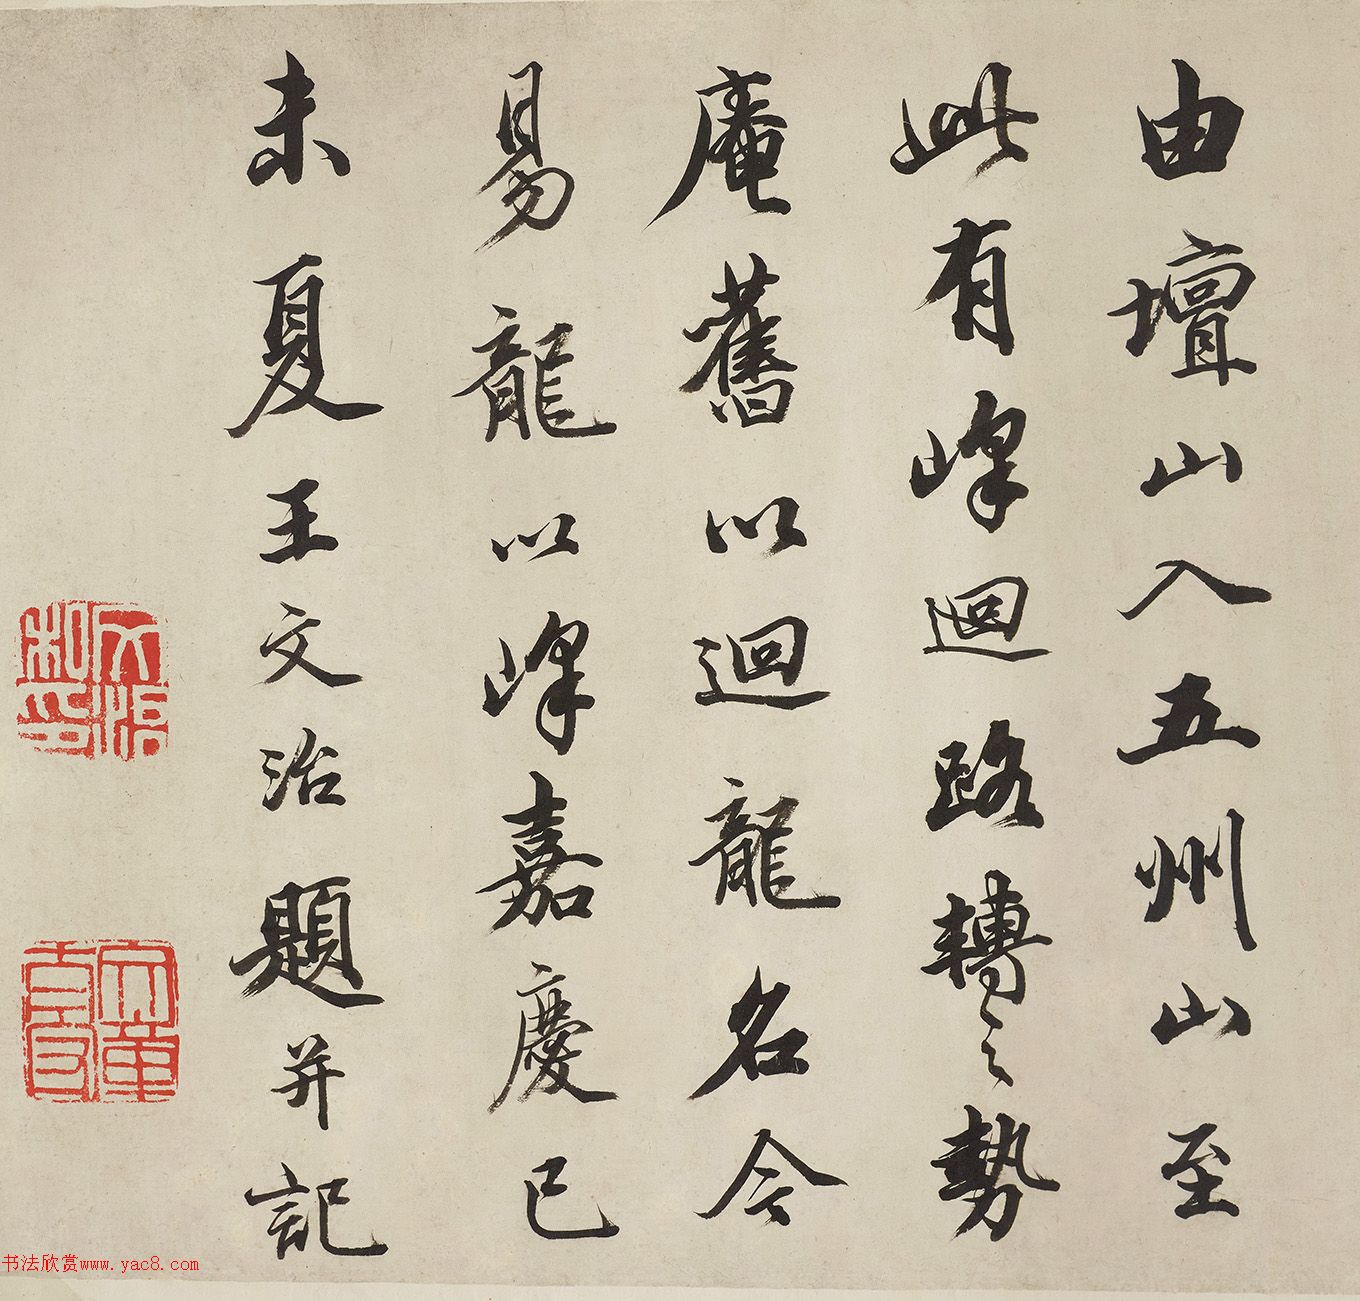 由壇山入五州山至
此有峰迴路轉之勢
庵舊以迴龍名今
易龍以峰嘉慶已
未夏王文治題并記
文治
私印
书法欣赏www.yac8.com